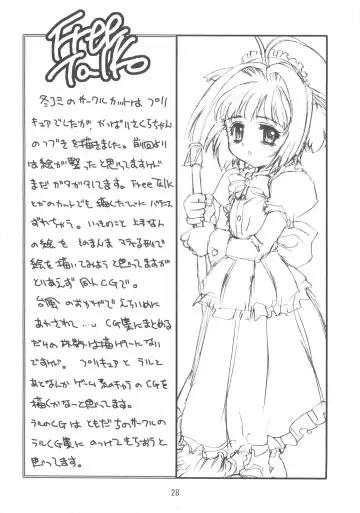 Free
Talk
冬コミのサークルカットは プリ
キュアでしたが、やっぱりさくらちゃん
のつづき を描きました。前回より
は絵が整ったと思ってますけど
まだ ガタガタしてます。Free Talk
とかのカットでも 描くたびに バランス
ずれちゃう。いっそのこと 上手な人
の絵を
絵を 描いてみようと思ってますが
とりあえず 同人CGで。
台風 のおかげで えらいめに
あわされて…… CG集にまとめる
だけの 枚数は描けそうにない
ですけど。 プリキュア と ラルと
あとなんか ゲーム 系のキャラのCGを
描くかなーと 思ってます。
ラルのCGは ともだちのサークルの
ラルCG集に のっけてもらおうと
思ってます。
28